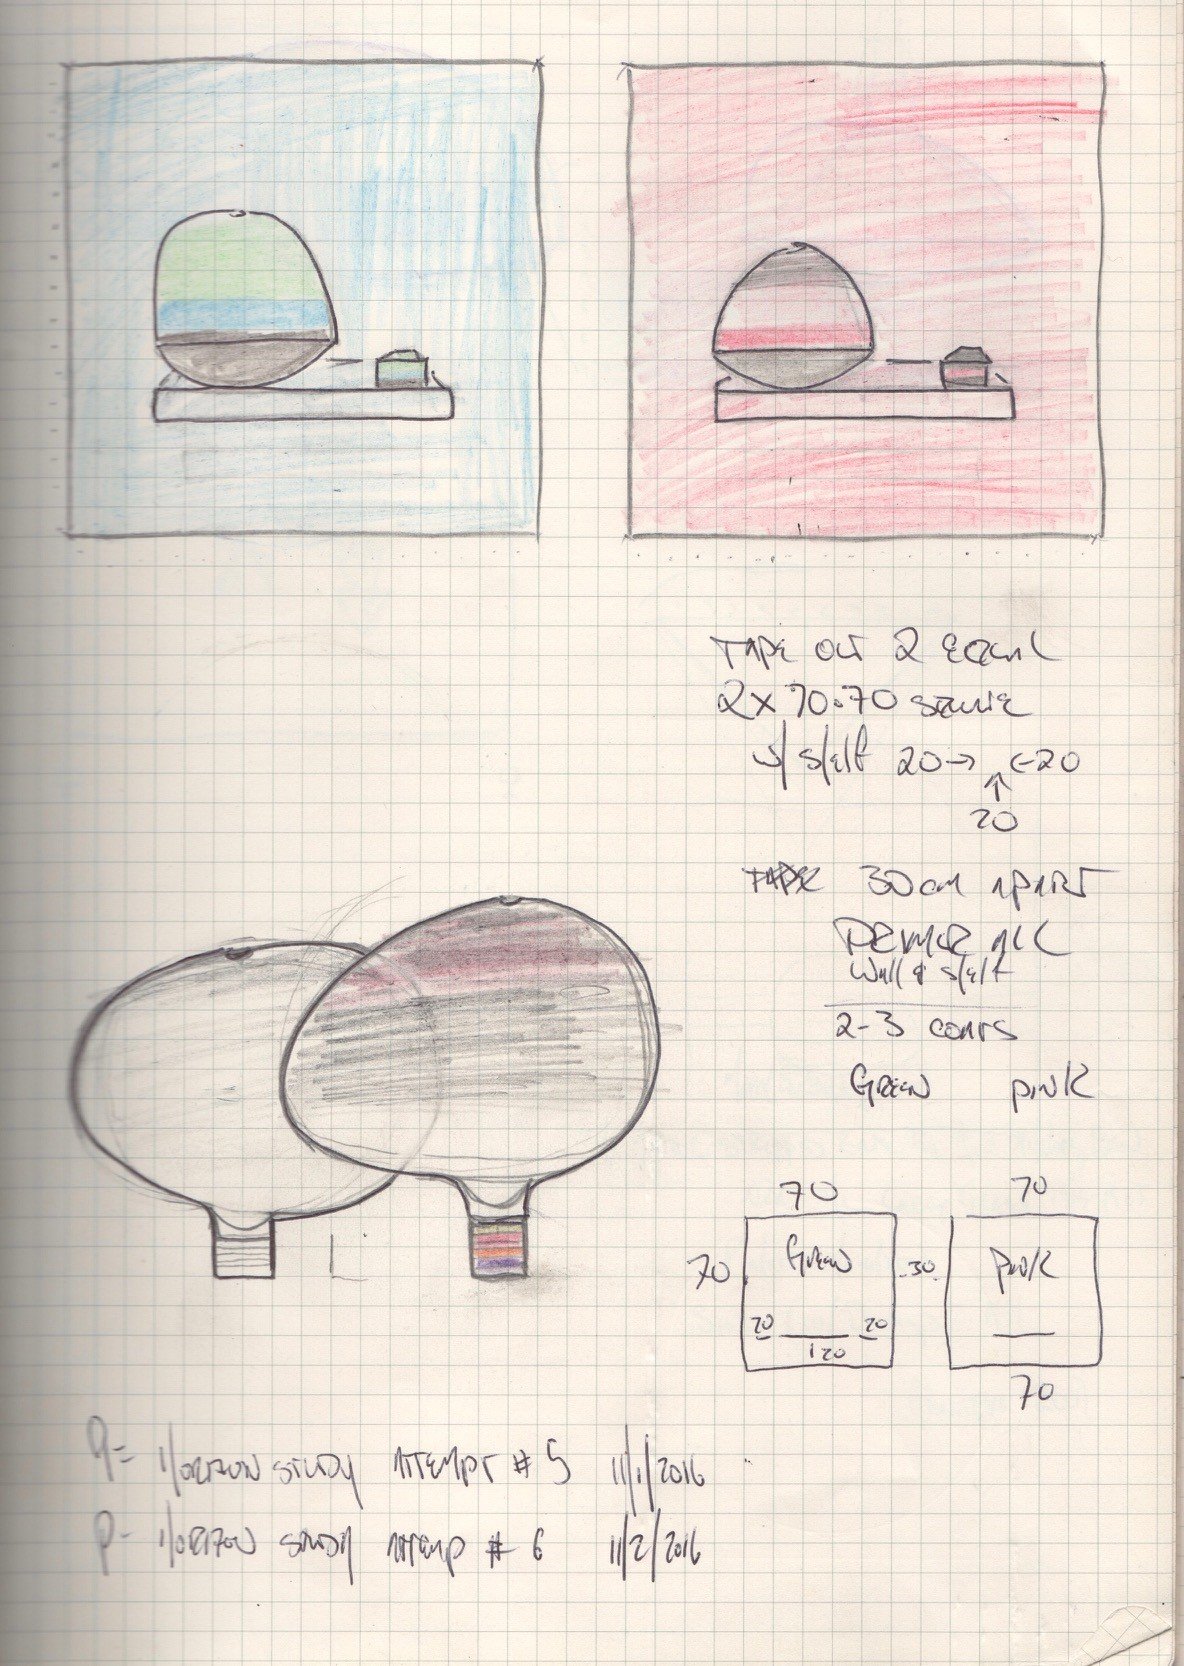 TAPE OUT 2 EQUAL
2 x 70.70 SQUARE
w/ shelf 20→ ←20
↑
20
30cm APART
PRIMER ALL
Wall & shelf
2-3 COATS
GREEN PINK
70 70
70 GREEN 30 PINK
20 20
20
70
P= HORIZON STUDY ATTEMPT # 5 11/1/2016
P= HORIZON STUDY ATTEMP # 6 11/2/2016